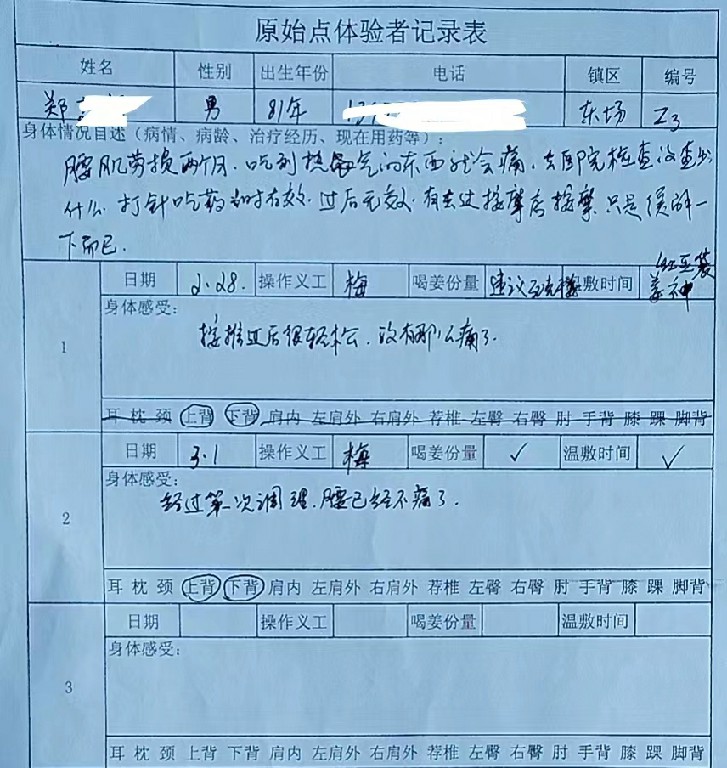 原始点体验者记录表
姓名 性别 出生年份 电话 镇区 编号
郑 男 81年 东场 Z3
身体情况自述（病情、病龄、治疗经历、现在用药等）：
腰肌劳损两个月，吃到热毒气的东西就会痛，去医院检查没查出
什么，打针吃药当时有效，过后无效，有去过按摩店按摩，只是缓解一
下而已.
1
日期 2.28. 操作义工 梅 喝姜份量 建议 温敷时间
身体感受：
按推过后很轻松，没有那么痛了.
耳 枕 颈 上背 下背 肩内 左肩外 右肩外 荐椎 左臀 右臀 肘 手背 膝 踝 脚背
2
日期 3.1 操作义工 梅 喝姜份量 ✓ 温敷时间 ✓
身体感受：
经过第一次调理，腰已经不痛了.
耳 枕 颈 上背 下背 肩内 左肩外 右肩外 荐椎 左臀 右臀 肘 手背 膝 踝 脚背
3
日期 操作义工 喝姜份量 温敷时间
身体感受：
耳 枕 颈 上背 下背 肩内 左肩外 右肩外 荐椎 左臀 右臀 肘 手背 膝 踝 脚背